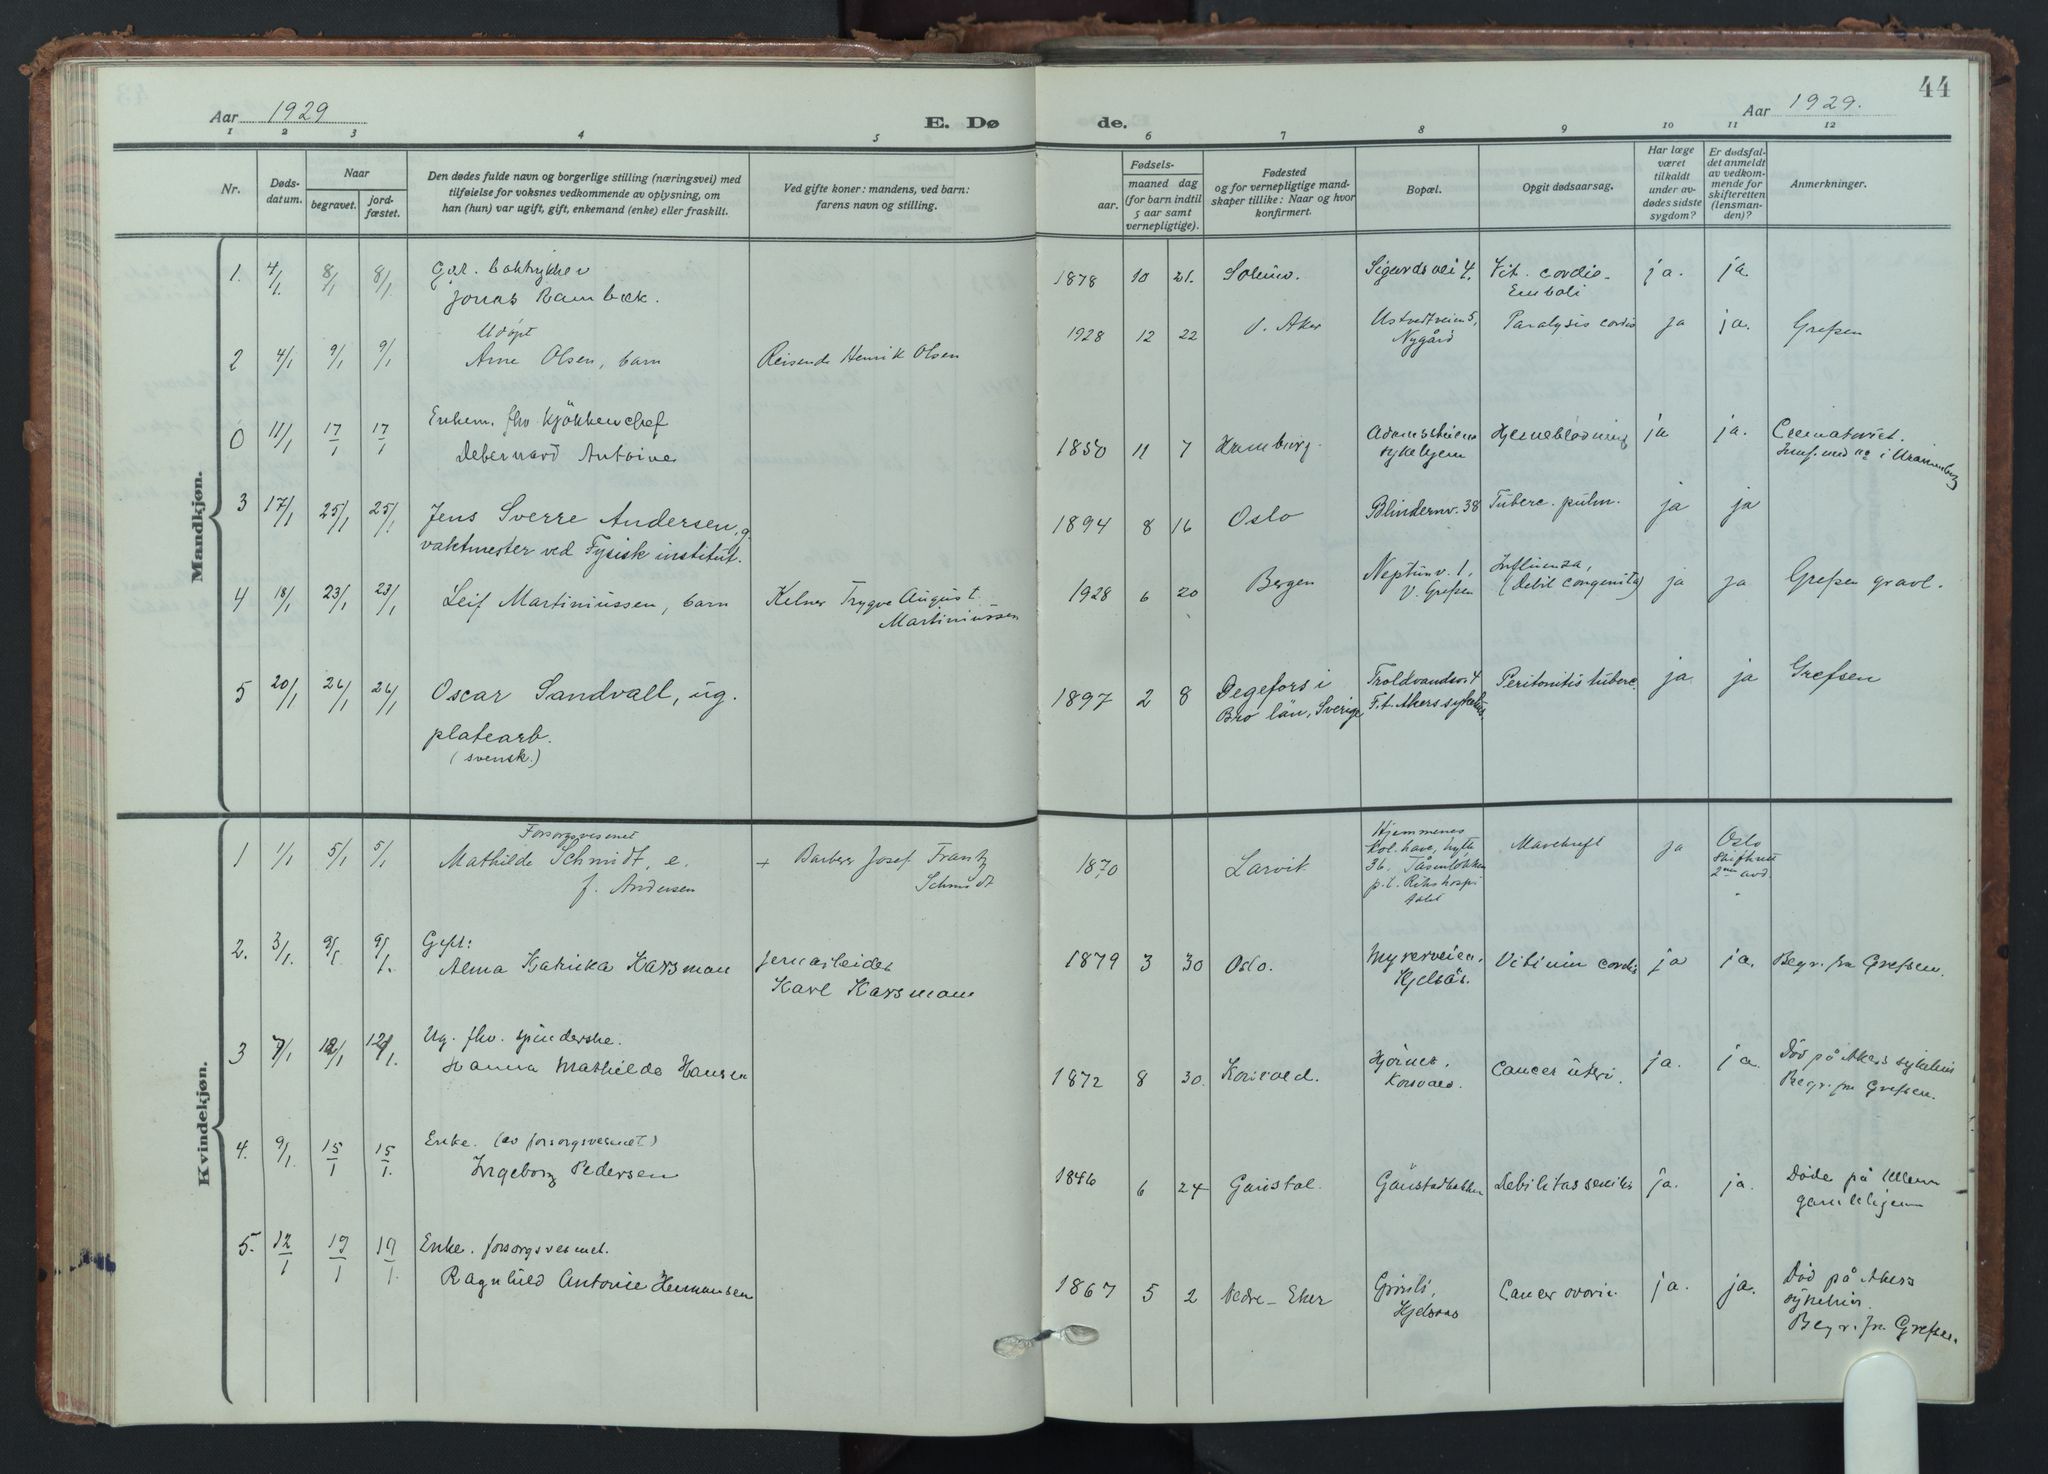 43
44
Aar 1929
E. Dø
de.
Aar 1929.
1 2 3 4 5 6 7 8 9 10 11 12
Nr.
Døds-
datum.
Naar
begravet.
jord-
fæstet.
Den dødes fulde navn og borgerlige stilling (næringsvei) med
tilføielse for voksnes vedkommende av oplysning, om
han (hun) var ugift, gift, enkemand (enke) eller fraskilt.
Ved gifte koner: mandens, ved barn:
farens navn og stilling.
Fødsels-
aar.
maaned dag
(for barn indtil
5 aar samt
vernepligtige).
Fødested
og for vernepligtige mand-
skaper tillike: Naar og hvor
konfirmert.
Bopæl.
Opgit dødsaarsag.
Har læge
været
tilkaldt
under av-
dødes sidste
sygdom?
Er dødsfal-
det anmeldt
av vedkom-
mende for
skifteretten
(lensman-
den)?
Anmerkninger.
Mandkjøn.
1. 4/1. 8/1 8/1
Jonas Rambæk.
1878 10 21.
Sigurdsvei 4.
Vit. cordis
Emboli
ja. ja.
2 4/1 9/1 9/1
Udöpt
Arne Olsen, barn
Reisende Henrik Olsen
1928 12 22
V. Aker
Ustvedtveien 5,
Nygård
Paralysis cordis
ja ja.
Grefsen
0 11/1 17/1 17/1
Enkem. fhv. kjökkenchef
Debernard Antoine
1850 11 7
Hamburg.
sykehjem
Hjerneblödning
ja ja.
Crematoriet.
3 17/1 25/1 25/1
Jens Sverre Andersen, g.
vaktmester ved Fysisk institut.
1894 8 16
Oslo
Blindernv. 38
Tuberc. pulm.
ja ja
4 18/1 23/1 23/1
Leif Martiniussen, barn
Kelner Trygve August
Martiniussen
1928 6 20
Bergen
Neptunv. 1,
V. Grefsen
Influensa,
(Debil congenita)
ja ja
Grefsen gravl.
5 20/1 26/1 26/1
Oscar Sandvall, ug.
platearb.
(svensk.)
1897 2 8
Degefors i
län, Sverige
Troldvandsv. 4
F.t. Akers sykehus.
Peritonitis tuberc.
ja ja
Grefsen
Kvindekjøn.
1 1/1 5/1 5/1
Forsorgsvesenet
Mathilde Schmidt, e.
f. Andersen
+ Barberer Josef Frantz
Schmidt
1870
Larvik
Hjemmenes
Kol. have, hytte
36. Tåsenløkken
p.t. Rikshospi
talet
Mavekreft
ja
Oslo
Skifteret
2nen avd.
2. 3/1. 9/1 9/1.
Gift:
Alma Katinka Karsman
Jernarbeider
Karl Karsmam
1879 3 30
Oslo.
Myrerveien,
Kjelsås.
Vitium cordis
ja ja.
Begr. fra Grefsen.
3 7/1 12/1 12/1.
Ug. fhv. spinderske.
Hanna Mathilde Hansen
1872 8 30.
Korsvold.
Hjörnet,
Korsvold.
Cancer uteri.
ja. ja.
Död på Akers sykehus
Begr. fra Grefsen.
4. 9/1. 15/1 15/1.
Enke. (av forsorgsvesenet)
Ingeborg Pedersen
1846 6 24
Gaustad.
Gaustadbakken
Debilitas senilis
ja. ja.
Döde på Ullern
gamlehjem
5. 12/1 19/1 19/1.
Enke. forsorgsvesenet.
Ragnhild Antonie Hermansen
1867 5 2
Nedre-Eker
Kjelsaas
Cancer ovarie.
ja. ja.
Död på Akers
sykehus.
Begr. fra Grefsen.